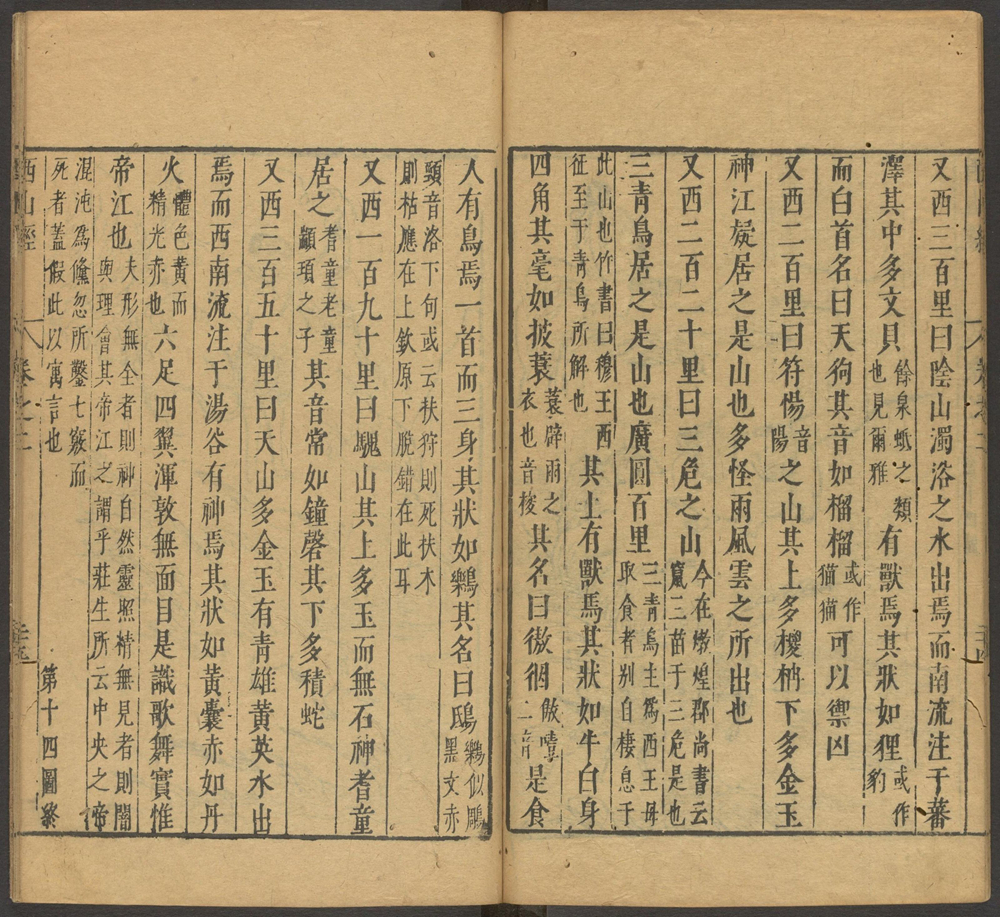 又西三百里曰陰山濁浴之水出焉而南流注于蕃
澤其中多文貝餘泉蚳之類也見爾雅有獸焉其狀如狸或作豹
而白首名曰天狗其音如榴榴或作猫猫可以禦凶
又西二百里曰符惕音陽之山其上多椶枬下多金玉
神江疑居之是山也多怪雨風雲之所出也
又西二百二十里曰三危之山今在燉煌郡尚書云竄三苗于三危是也
三青鳥居之是山也廣圓百里三青鳥主爲西王母取食者别自棲息于
此山也竹書曰穆王西征至于青鳥所解也其上有獸焉其狀如牛白身
四角其毫如披蓑蓑辟雨之衣也音梭其名曰㣂㣆傲噎二音是食
人有鳥焉一首而三身其狀如鶨其名曰鴟鶨似鵰黑文赤
頸音洛下句或云扶狩則死扶木則枯應在上欽原下脫錯在此耳
又西一百九十里曰騩山其上多玉而無石神耆童
居之耆童老童顓頊之子其音常如鐘磬其下多積蛇
又西三百五十里曰天山多金玉有青雄黃英水出
焉而西南流注于湯谷有神焉其狀如黃囊赤如丹
火體色黃而精光赤也六足四翼渾敦無面目是識歌舞實惟
帝江也夫形無全者則神自然靈照精無見者則闇與理會其帝江之謂乎莊生所云中央之帝
混沌爲儵忽所鑿七竅而死者蓋假此以寓言也 第十四圖終
西山經 卷之二